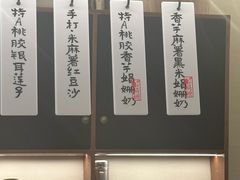 特A桃胶银耳莲子
手打·米麻薯红豆沙
特A桃胶香芋娟姗奶
香芋麻薯黑米娟姗奶